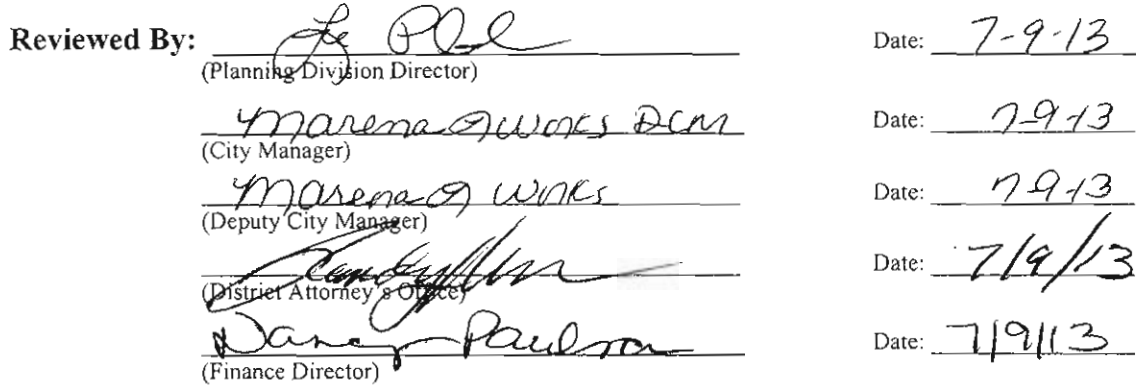 Reviewed By: Date: 7-9-13
(Planning Division Director)
Marena Works DCM Date: 7-9-13
(City Manager)
Marena Works Date: 7-9-13
(Deputy City Manager)
Date: 7/9/13
(District Attorney's Office)
Nancy Paulson Date: 7/9/13
(Finance Director)